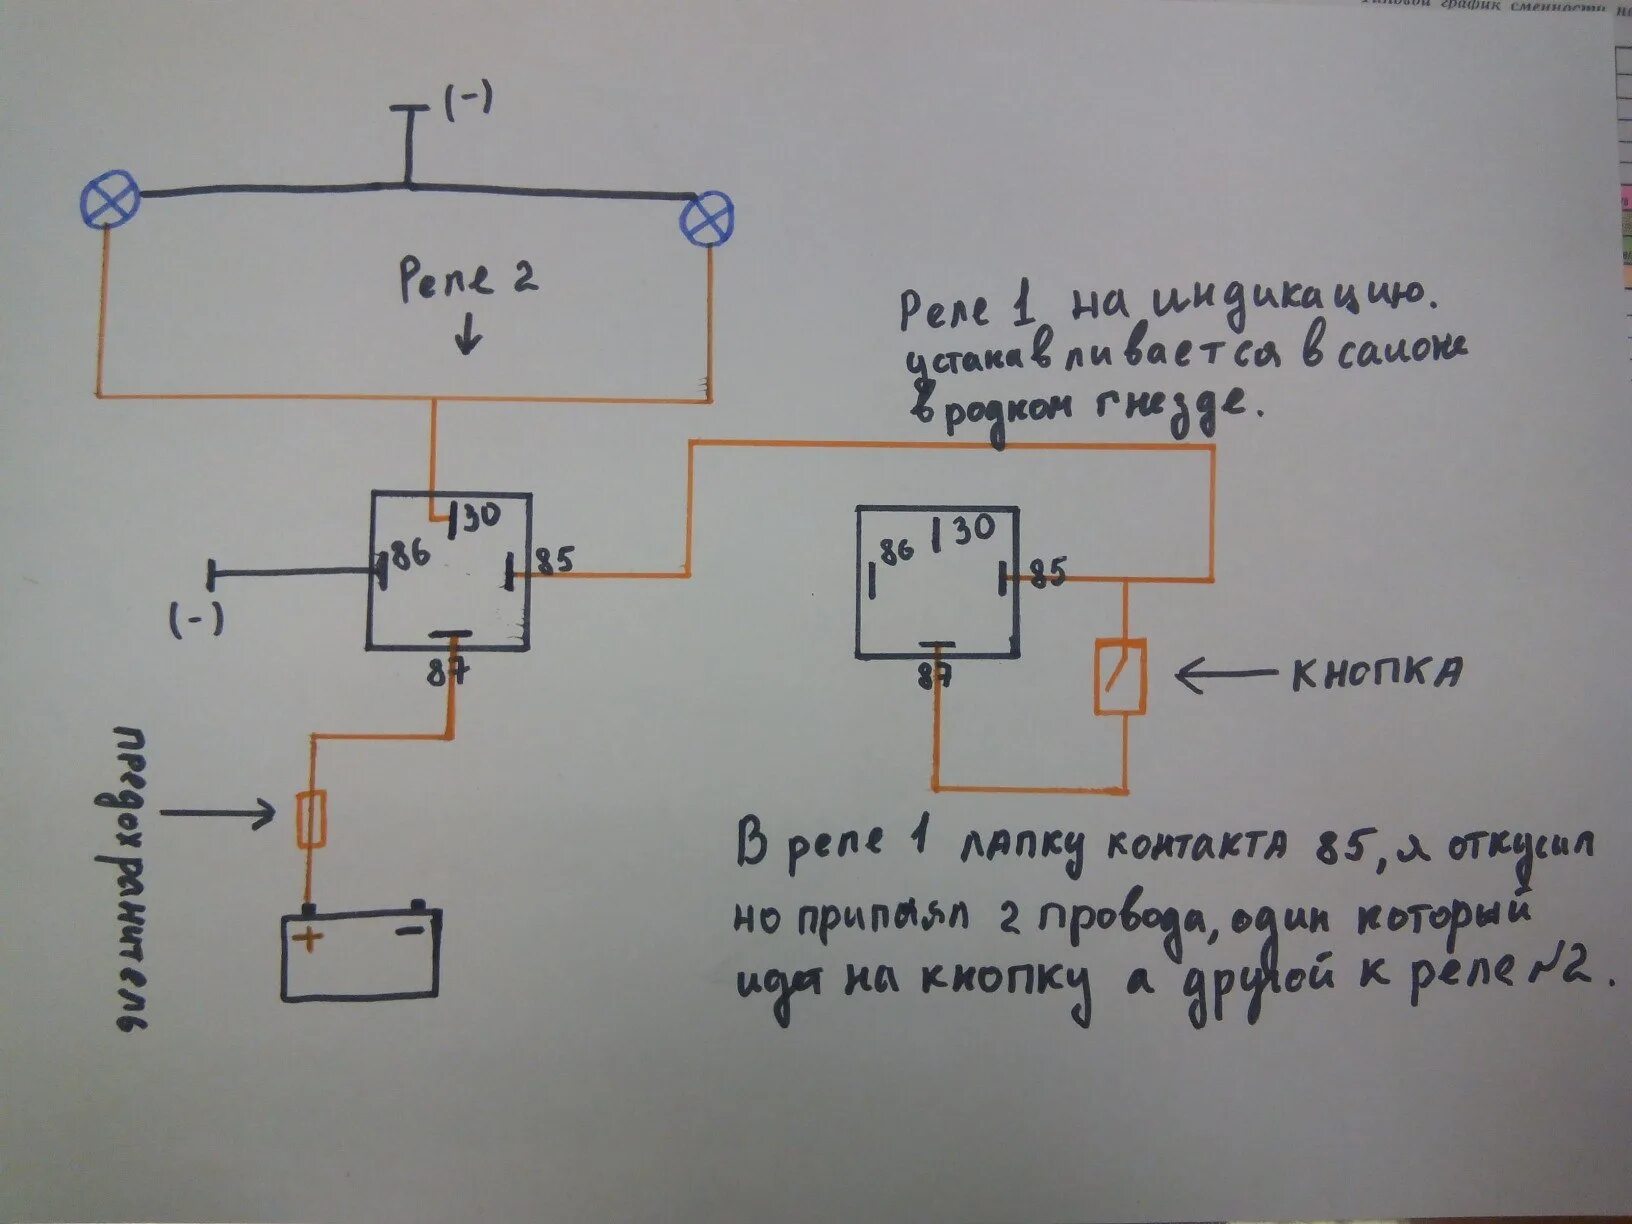 Типовой график сменности
(-)
Реле 2
Реле 1 на индикацию.
устанавливается в салоне
в родном гнезде.
30
86
85
87
(-)
30
86
85
87
КНОПКА
предохранитель
+ -
В реле 1 лапку контакта 85, я откусил
но припаял 2 провода, один который
идет на кнопку а другой к реле №2.